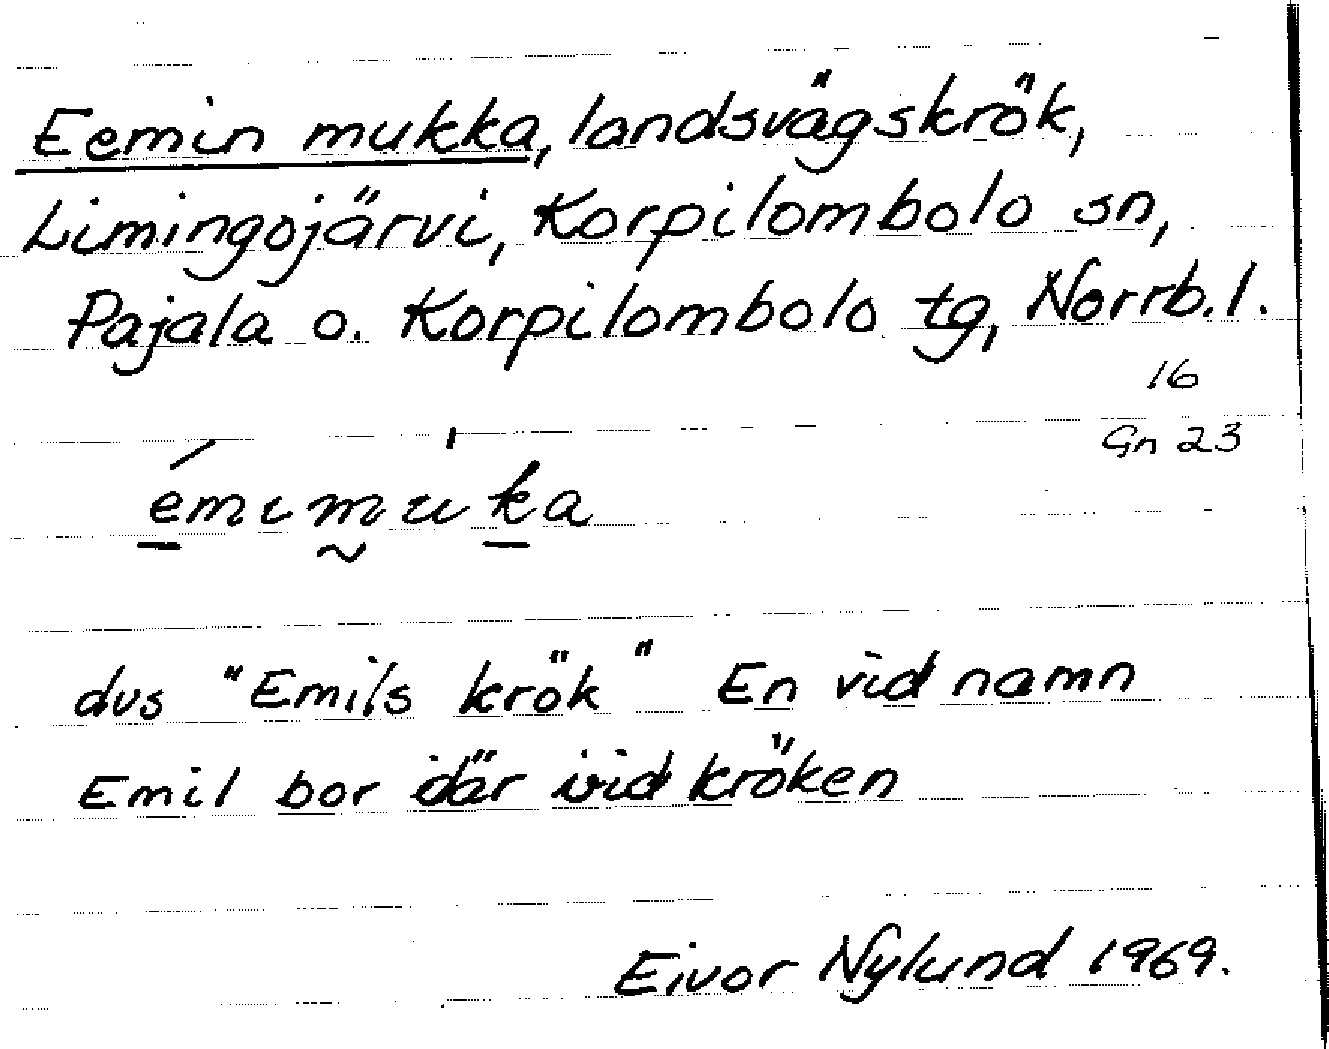 Eemin mukka, landsvägskrök,
Limingojärvi, Korpilombolo sn,
Pajala o. Korpilombolo tg, Norrb.l.
16
Gn 23
émɩmùka
dvs "Emils krök" En vid namn
Emil bor där vid kröken
Eivor Nylund 1969.